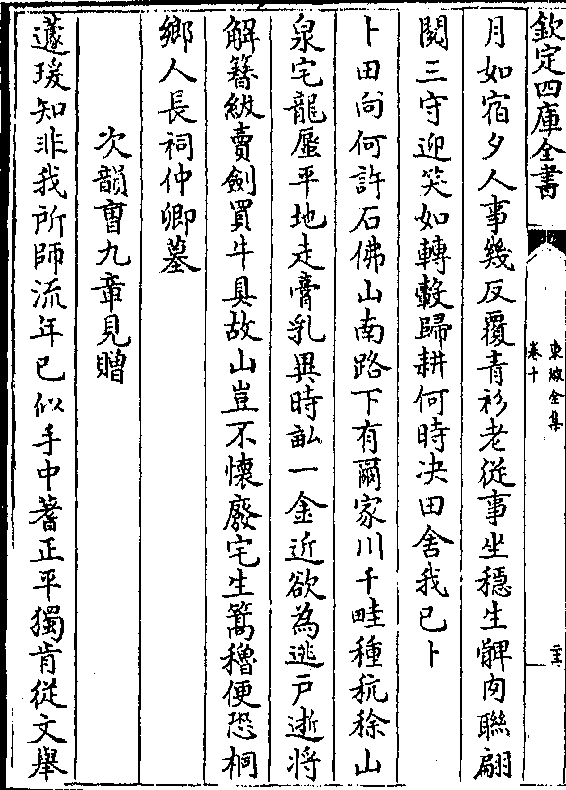 欽定四庫全書
東坡全集
卷十
月如宿夕人事幾反覆青衫老從事坐穩生髀肉聯翩
閱三守迎笑如轉轂歸耕何時决田舍我已卜
卜田向何許石佛山南路下有爾家川千畦種秔稌山
泉宅龍蜃平地走膏乳異時畆一金近欲為逃戸逝将
解簪紱賣劍買牛具故山豈不懷廢宅生蒿穭便恐桐
鄉人長祠仲卿墓
次韻曹九章見贈
蘧瑗知非我所師流年已似手中蓍正平獨肯從文舉